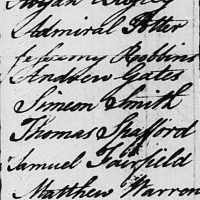 Admiral Potter
Robbins
Andrew Gates
Simeon Smith
Thomas Shafford
Samuel Fairfield
Matthew Warren